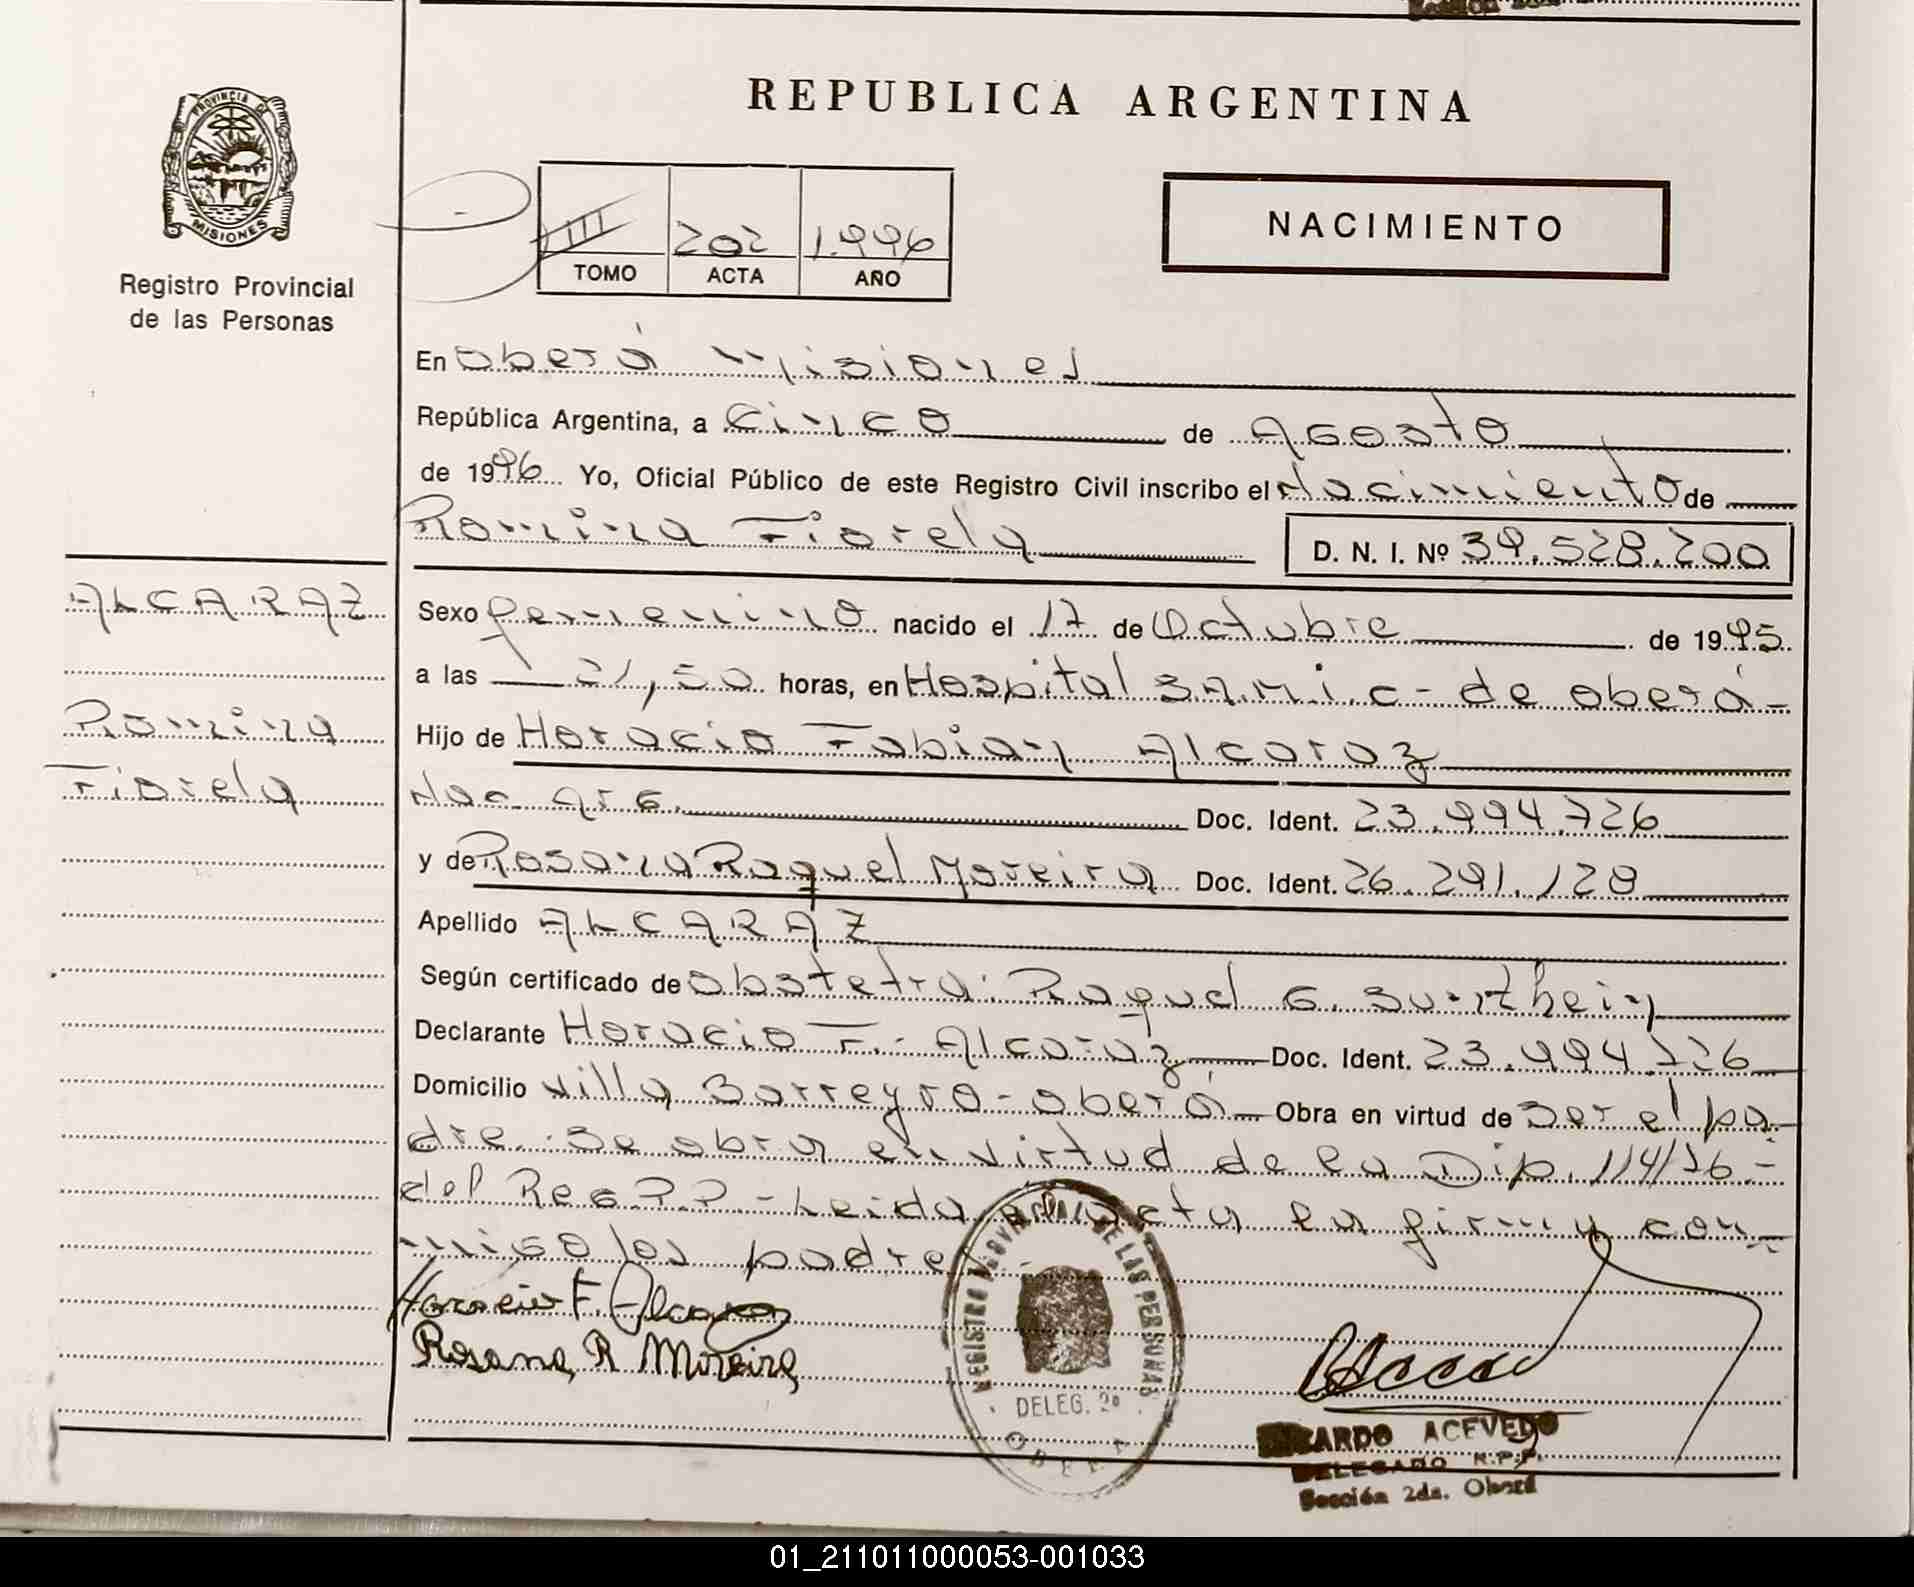 REPUBLICA ARGENTINA
PROVINCIA DE
MISIONES
Registro Provincial
de las Personas
III 202 1.996
TOMO ACTA AÑO
NACIMIENTO
En Oberá Misiones
República Argentina, a Cinco de Agosto
de 1996 Yo, Oficial Público de este Registro Civil inscribo el Nacimiento de
Romina Fiorela D. N. I. Nº 39.528.200
ALCARAZ
Romina
Fiorela
Sexo femenino nacido el 17 de Octubre de 1995
a las 21,50 horas, en Hospital S.A.M.I.C - de Oberá -
Hijo de Horacio Fabian Alcaraz
Nac. Arg. Doc. Ident. 23.994.726
y de Rosana Raquel Moreira Doc. Ident. 26.291.128
Apellido ALCARAZ
Según certificado de Obstetra: Raquel G.
Declarante Horacio F. Alcaraz Doc. Ident. 23.994.726
Domicilio Villa Barreyro - Oberá Obra en virtud de ser el pa-
dre. Se obra en virtud de la Dip. 114/76 -
del Reg.P.P. - Leida el acta la firma con-
migo los padres
Horacio F. Alcaraz
Rosana R Moreira
REGISTRO PROVINCIAL DE LAS PERSONAS
DELEG. 2ª
OBERA
RICARDO ACEVEDO
DELEGADO R.P.P.
Sección 2da. Oberá
01_211011000053-001033